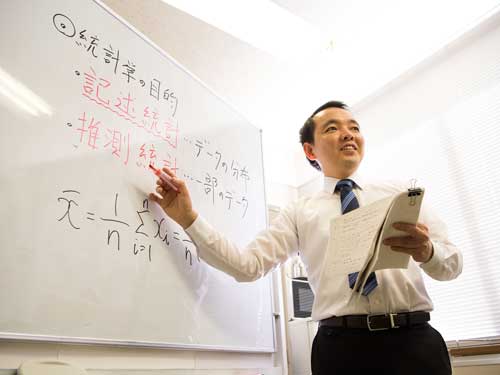 ◎統計学の目的
・記述統計…データの分布
・推測統計…一部のデータ
x̄ = 1/n Σ_{i=1}^{n} xᵢ =